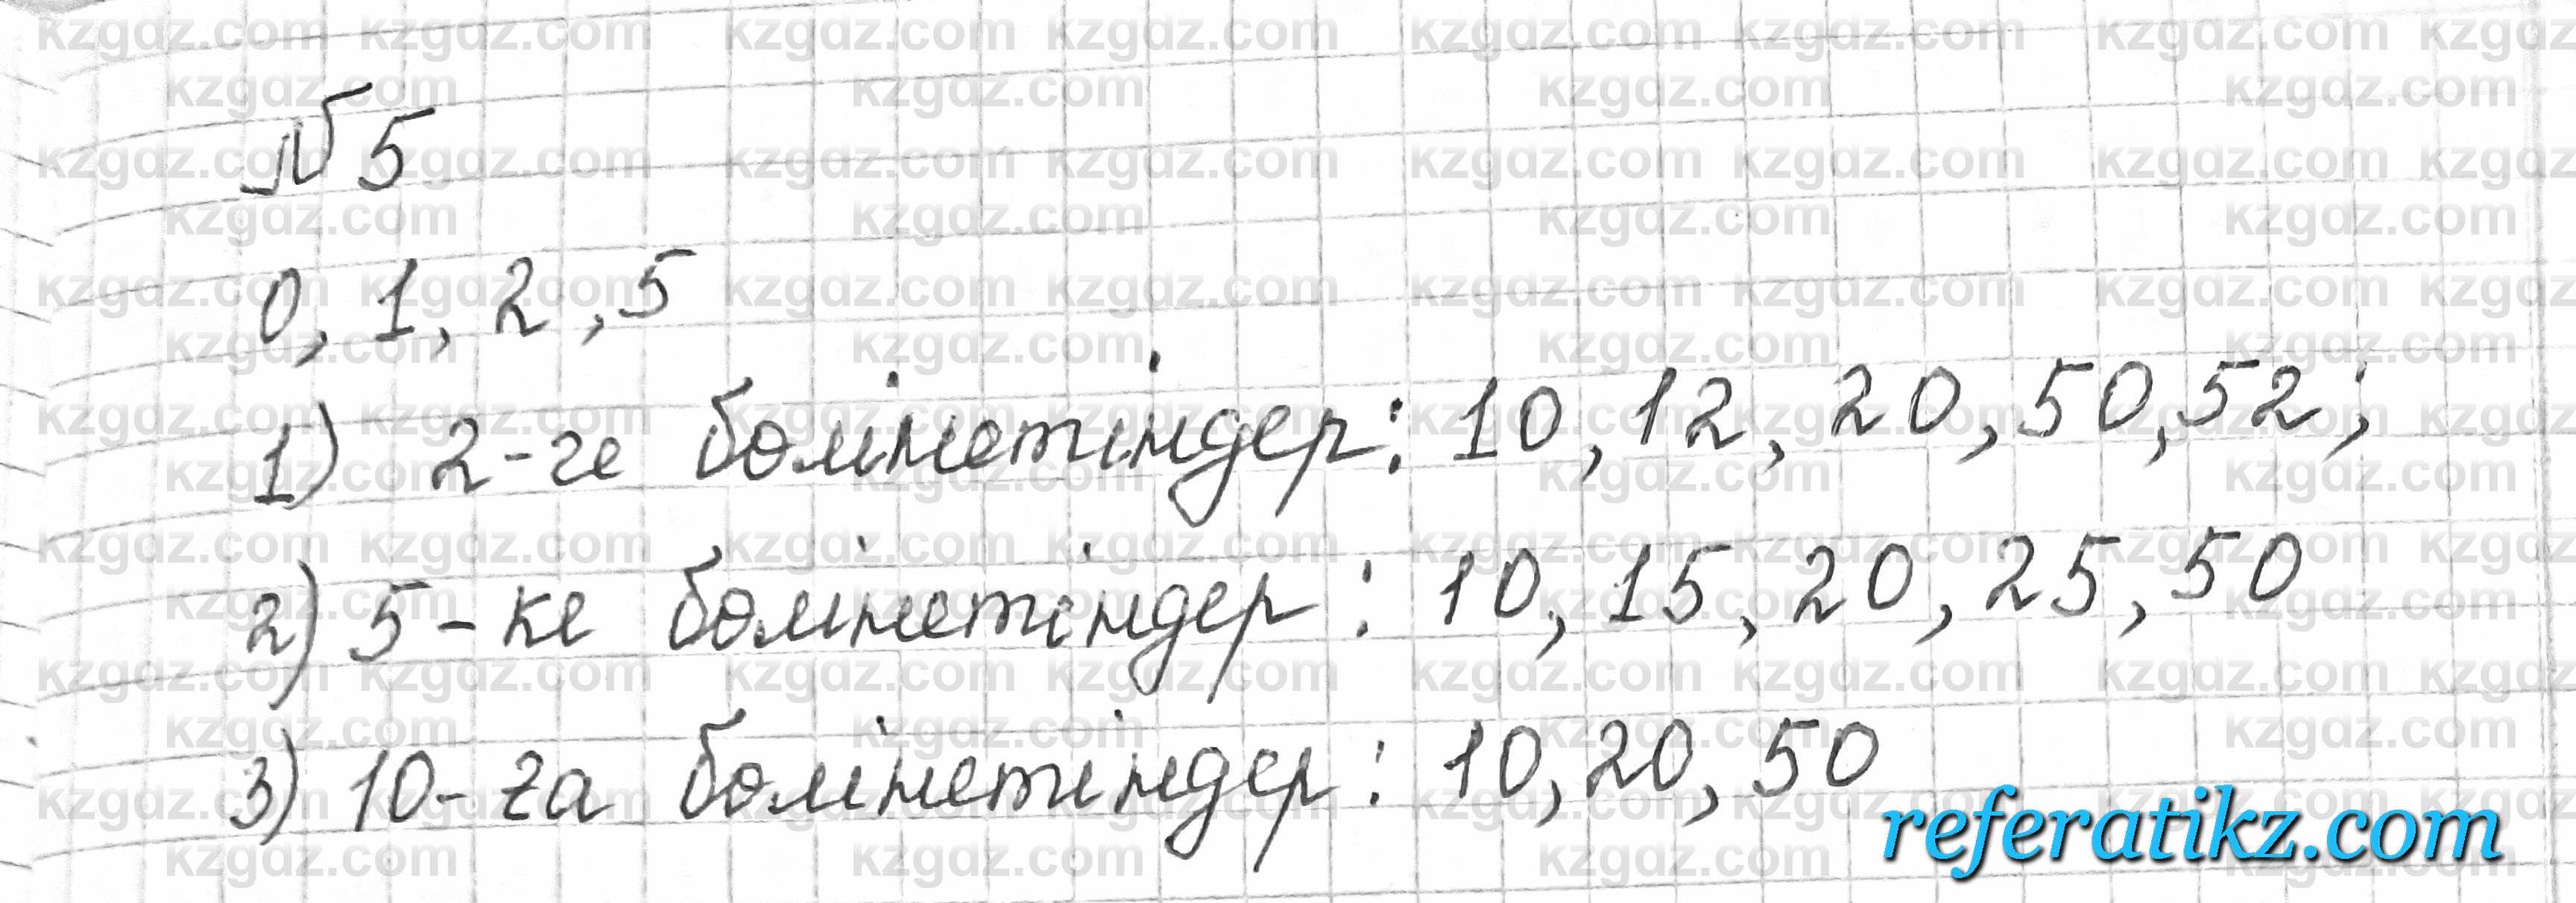 №5
0, 1, 2, 5
1) 2-ге бөлінетіндер: 10, 12, 20, 50, 52;
2) 5-ке бөлінетіндер: 10, 15, 20, 25, 50
3) 10-ға бөлінетіндер: 10, 20, 50
referatikz.com